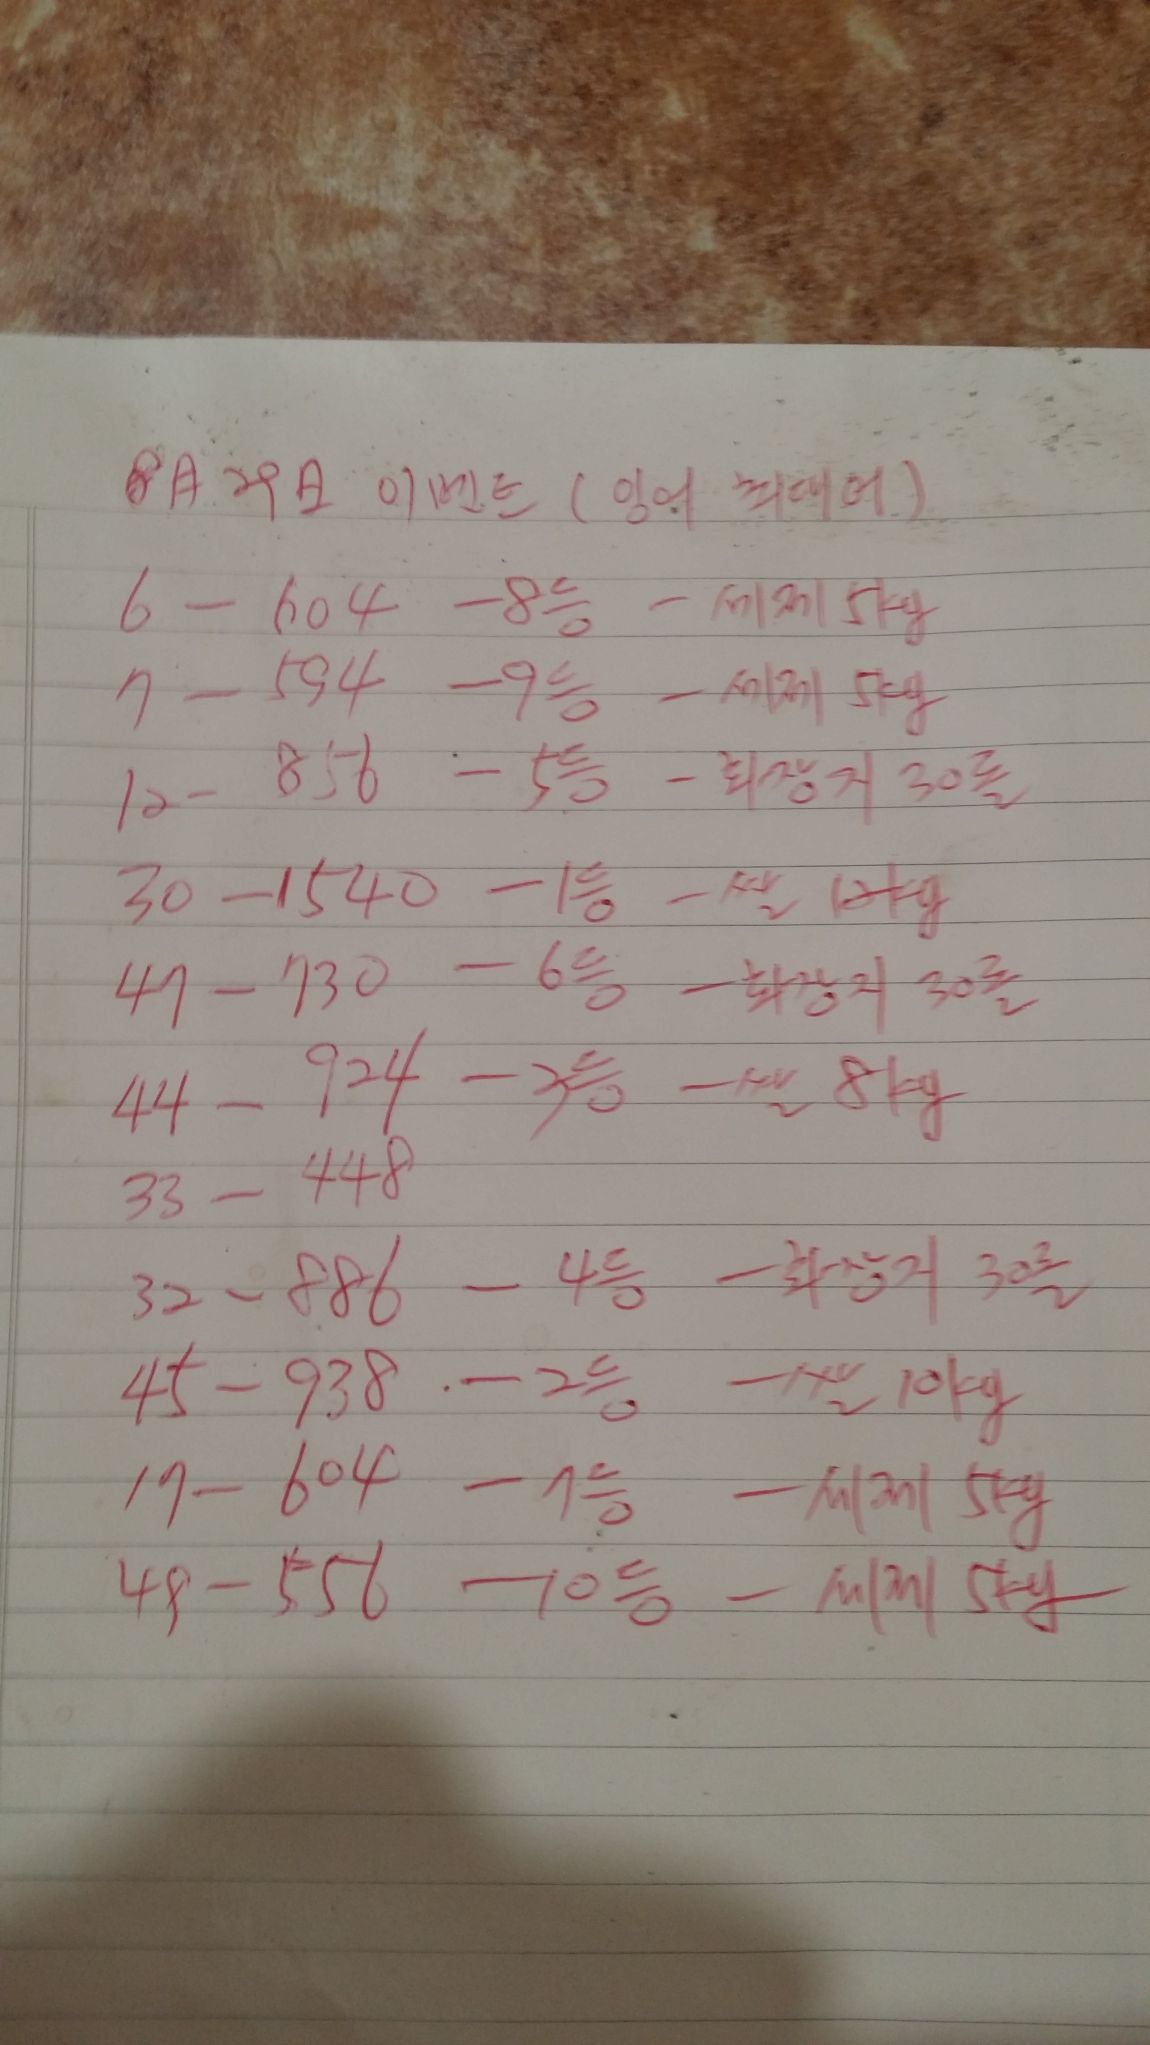 8月 29日 이벤트 (잉어 최대어)
6 - 604 - 8등 - 세제 5kg
7 - 594 - 9등 - 세제 5kg
12 - 856 - 5등 - 화장지 30롤
30 - 1540 - 1등 - 쌀 12kg
47 - 730 - 6등 - 화장지 30롤
44 - 924 - 3등 - 쌀 8kg
33 - 448
32 - 886 - 4등 - 화장지 30롤
45 - 938 - 2등 - 쌀 10kg
17 - 604 - 7등 - 세제 5kg
48 - 556 - 10등 - 세제 5kg